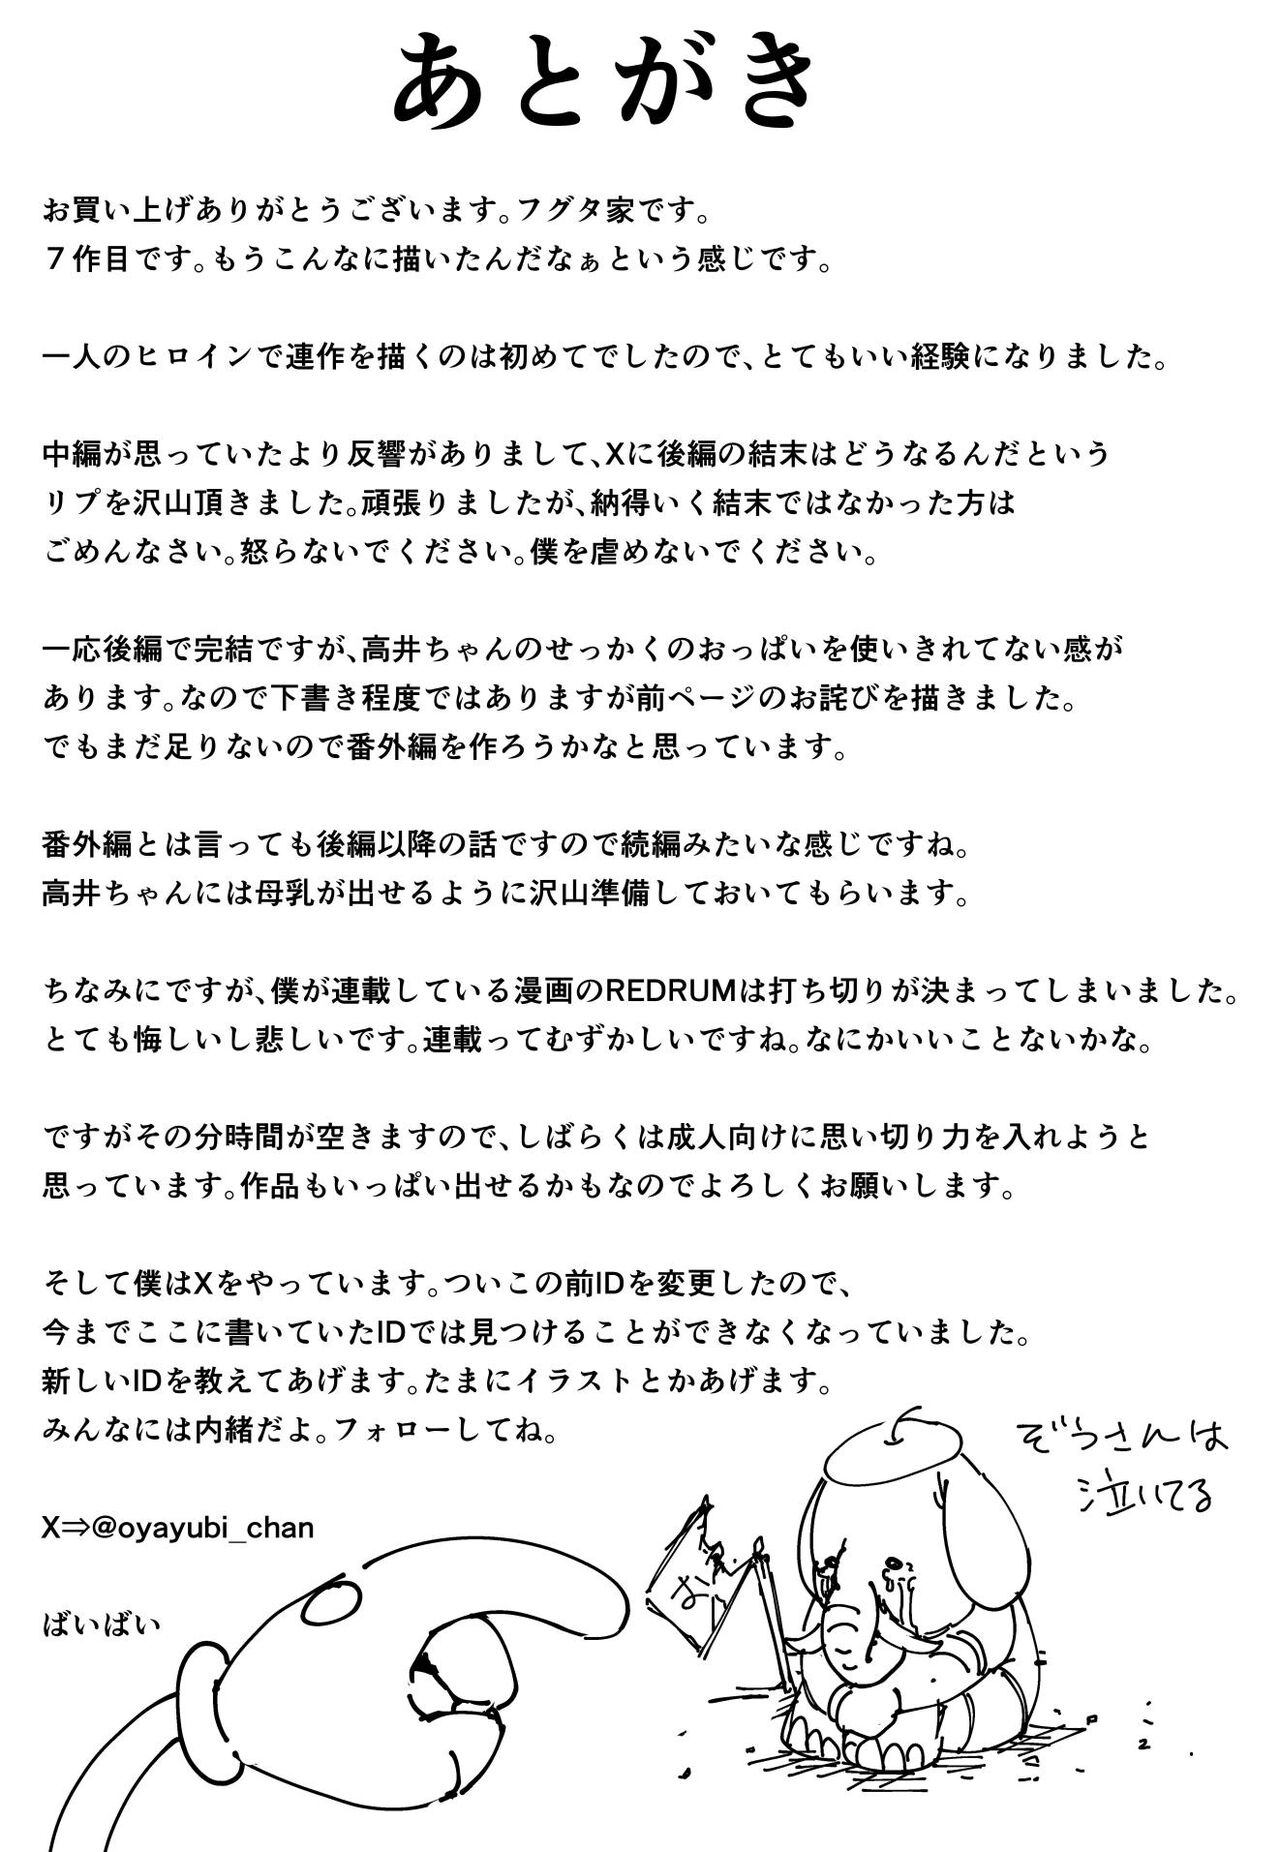 あとがき
お買い上げありがとうございます。フグタ家です。
７作目です。もうこんなに描いたんだなぁという感じです。
一人のヒロインで連作を描くのは初めてでしたので、とてもいい経験になりました。
中編が思っていたより反響がありまして、Xに後編の結末はどうなるんだという
リプを沢山頂きました。頑張りましたが、納得いく結末ではなかった方は
ごめんなさい。怒らないでください。僕を虐めないでください。
一応後編で完結ですが、高井ちゃんのせっかくのおっぱいを使いきれてない感が
あります。なので下書き程度ではありますが前ページのお詫びを描きました。
でもまだ足りないので番外編を作ろうかなと思っています。
番外編とは言っても後編以降の話ですので続編みたいな感じですね。
高井ちゃんには母乳が出せるように沢山準備しておいてもらいます。
ちなみにですが、僕が連載している漫画のREDRUMは打ち切りが決まってしまいました。
とても悔しいし悲しいです。連載ってむずかしいですね。なにかいいことないかな。
ですがその分時間が空きますので、しばらくは成人向けに思い切り力を入れようと
思っています。作品もいっぱい出せるかもなのでよろしくお願いします。
そして僕はXをやっています。ついこの前IDを変更したので、
今までここに書いていたIDでは見つけることができなくなっていました。
新しいIDを教えてあげます。たまにイラストとかあげます。
みんなには内緒だよ。フォローしてね。
ぞうさんは
泣いてる
X⇒@oyayubi_chan
ばいばい